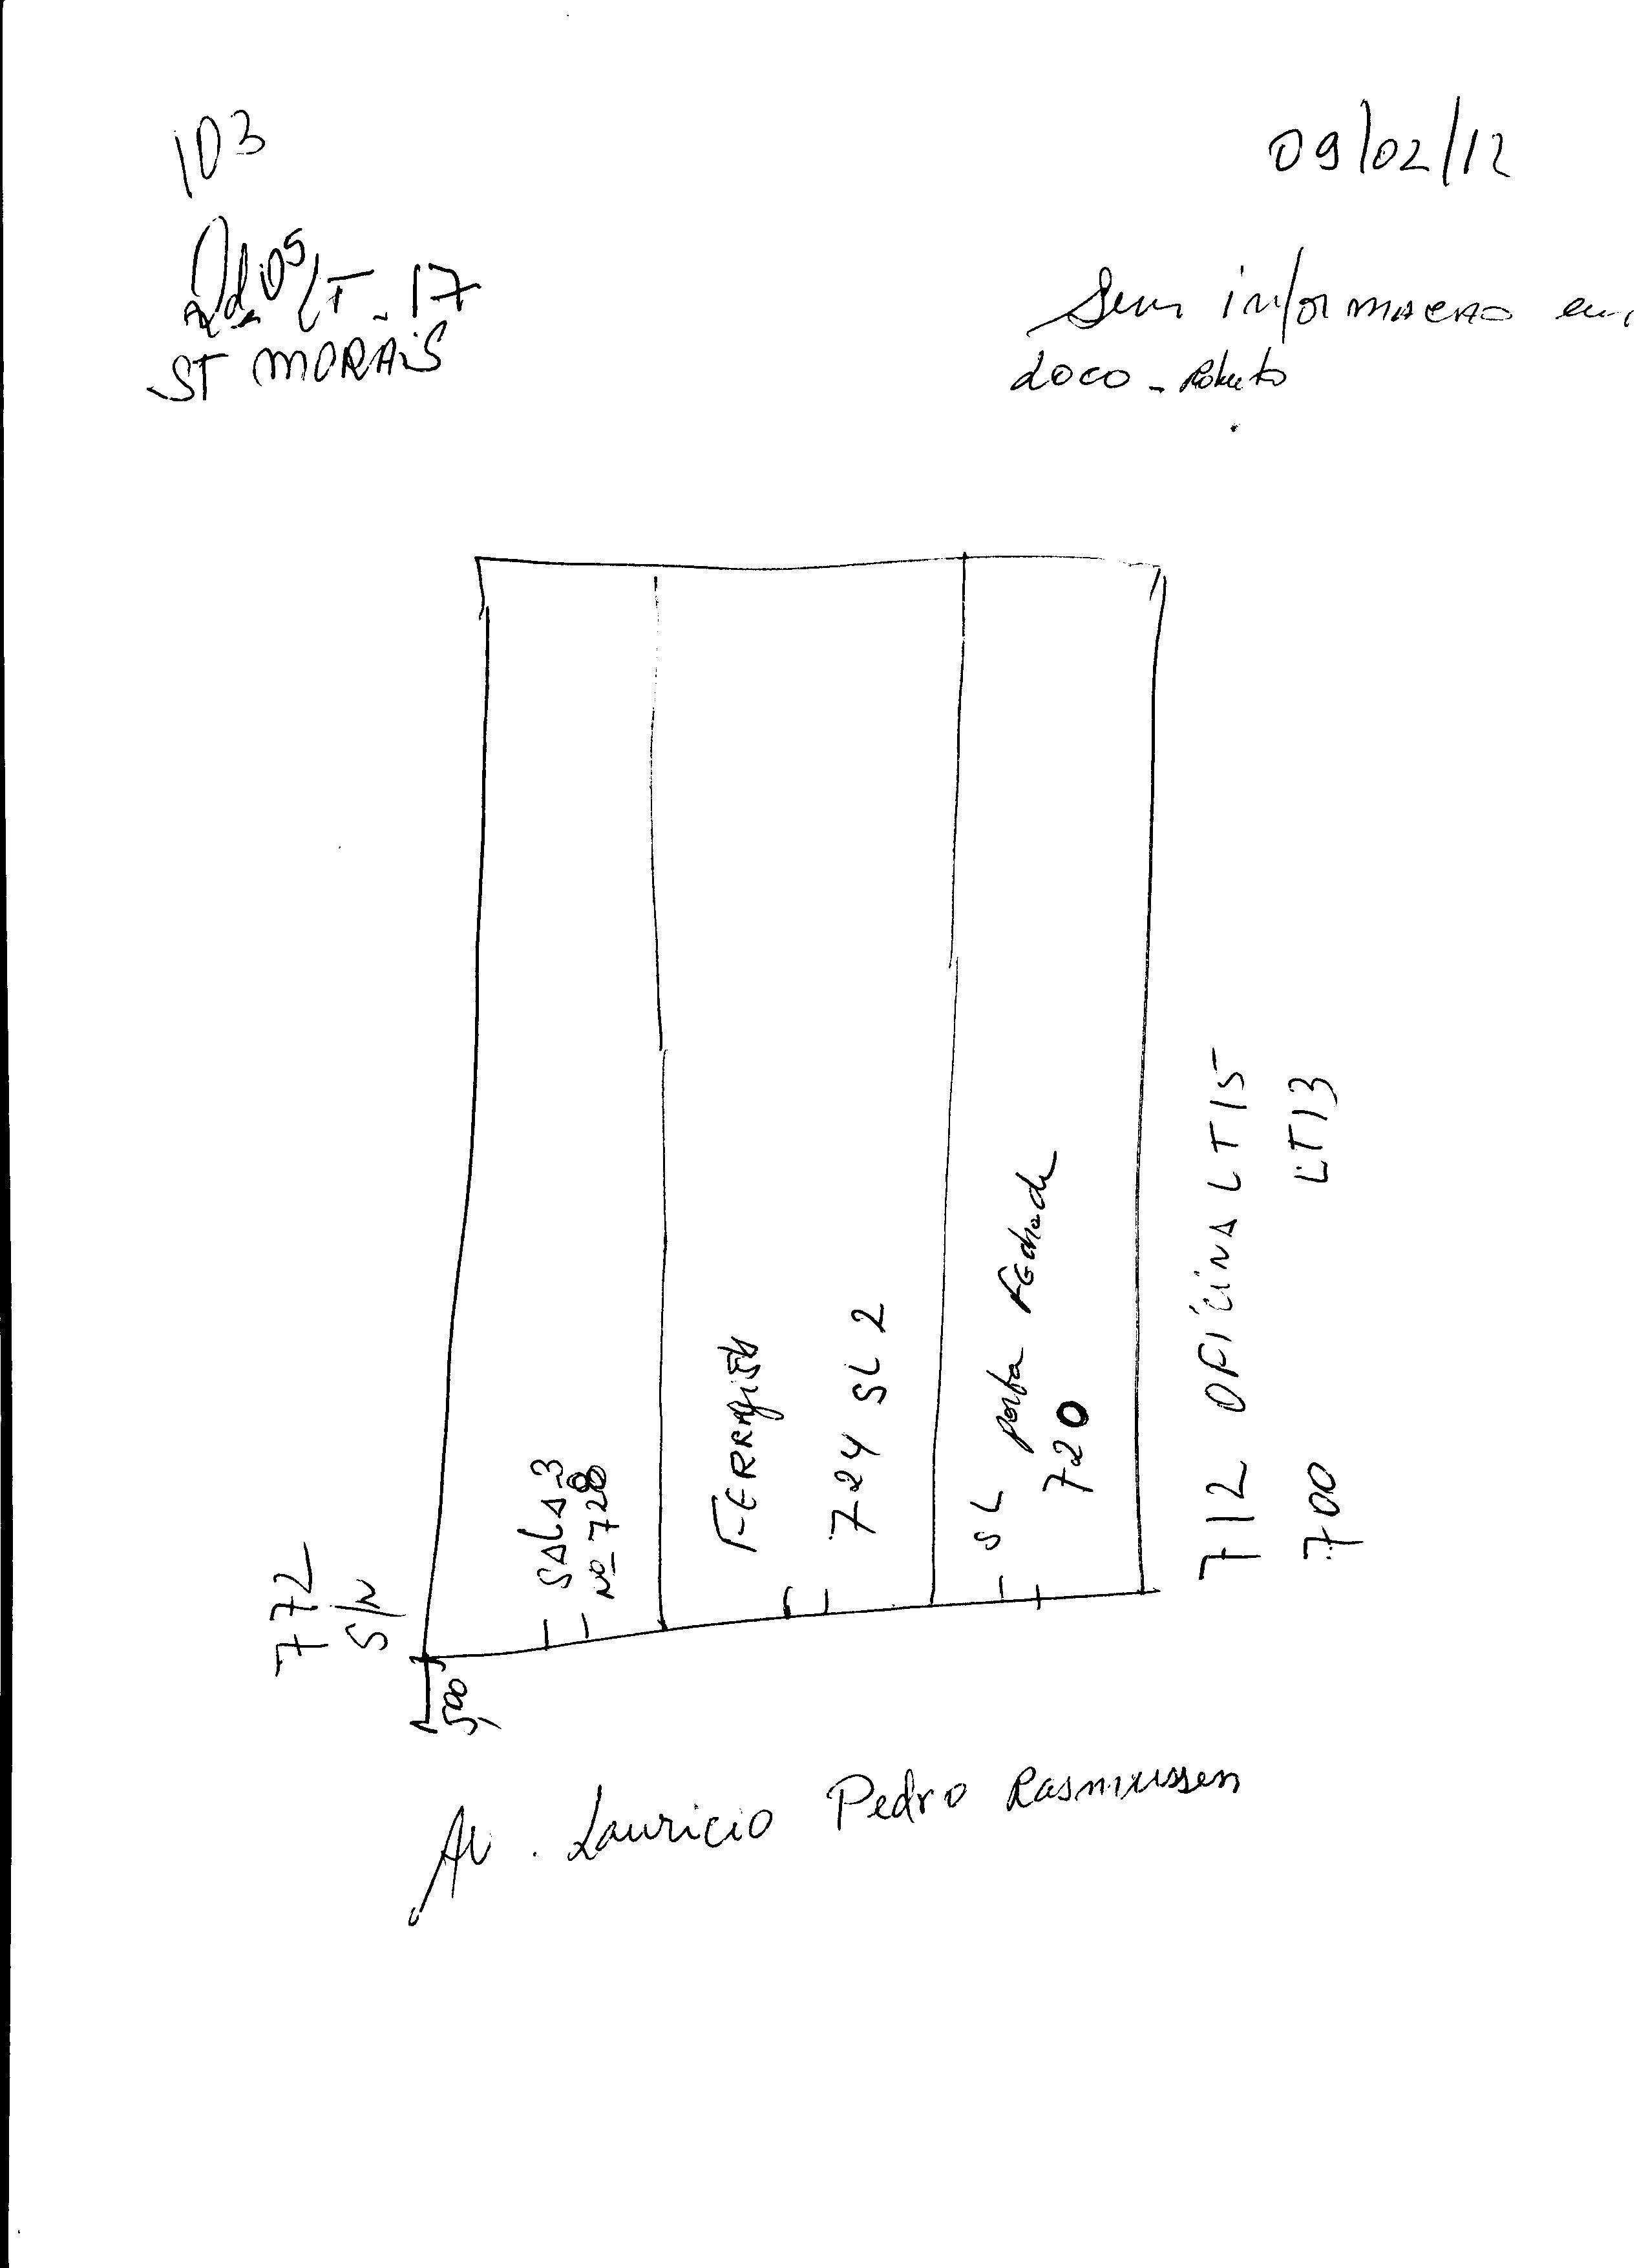 103
09/02/12
Qd. 05 LT - 17
ST MORAIS
Sem informacao em
loco - Roberto
SALA 3
Nº 728
724 SL 2
SL porta Fechada
720
712 OFICINA LT15
700 LT13
772
S/N
5,00
Av. Lauricio Pedro Rasmussen